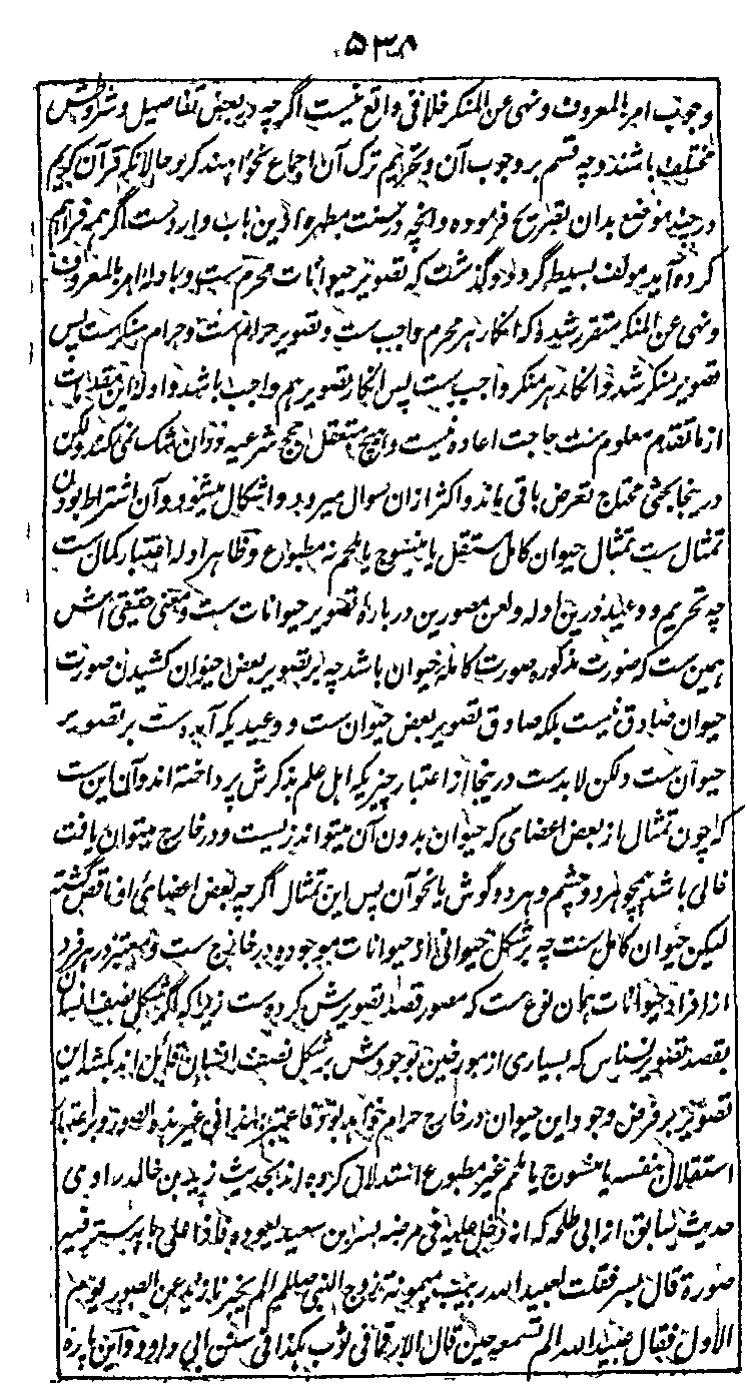 ۵۳۸
وجوب امر بالمعروف و نهی عن المنکر خلافی واقع نیست اگرچه در بعض تفاصیل و شرائطش
مختلف باشند و چه قسم بر وجوب آن و تحریم ترک آن اجماع نخواهند کرد حالانکه قرآن کریم
در چند موضع بدان تصریح فرموده و آنچه در سنت مطهره ازین باب وارد ست اگر هم فراهم
کرده آید مولف بسیط گردد و گذشت که تصویر حیوانات محرم ست و بادله امر بالمعروف
و نهی عن المنکر متقرر شده که انکار هر محرم واجب ست و تصویر حرام ست و حرام منکر ست پس
تصویر منکر شد و انکار هر منکر واجب ست پس انکار تصویر هم واجب باشد و ادله این مقدمات
از ما تقدم معلوم ست حاجت اعاده نیست و هیچ متعقل حجج شرعیه دران شک نمی کند ولکن
درینجا بحثی محتاج تعرض باقی ماند و اکثر ازان سوال میرود و اشکال میشود و آن اشتراط بودن
تمثال ست تمثال حیوان کامل مستقل یا منسوج یا ملحم نه مطبوع و ظاهر ادله اعتبار کمال ست
چه تحریم و وعید درین ادله و لعن مصورین درباره تصویر حیوانات ست و معنی حقیقی اش
همین ست که صورت مذکوره صورت کامله حیوان باشد چه بر تصویر بعض حیوان کشیدن صورت
حیوان صادق نیست بلکه صادق تصویر بعض حیوان ست و وعیدیکه آمده ست بر تصویر
حیوان ست ولکن لابد ست درینجا از اعتبار چیزیکه اهل علم بذکرش پرداخته اند و آن این ست
که چون تمثال از بعض اعضای که حیوان بدون آن میتواند زیست و در خارج میتوان یافت
خالی باشد همچو هر دو چشم و هر دو گوش یا نحو آن پس این تمثال اگرچه بعض اعضائی او ناقص گشته
لیکن حیوان کامل ست چه بر شکل حیوانی از حیوانات موجوده در خارج ست و معتبر در هر فرد
از افراد حیوانات همان نوع ست که مصور قصد تصویرش کرده ست زیرا که اگر شکل نصف انسان
بقصد تصویر نسناس که بسیاری از مورخین بوجودش بر شکل نصف انسان قائل اند بکشد این
تصویر بر فرض وجود این حیوان در خارج حرام خواهد بود فاعتبر هذا فی غیر هذه الصورة و بر اعتبار
استقلال بنفسه یا منسوج یا ملحم غیر مطبوع استدلال کرده اند بحدیث زید بن خالد راوی
حدیث سابق از ابی طلحه که انه دخل علیه فی مرضه بسر بن سعید یعوده فاذا علی بابه ستر فیه
صورة قال بسر فقلت لعبید الله ربیب میمونة زوج النبی صلعم الم یخبرنا زید عن الصور یوم
الاول فقال عبید الله الم تسمعه حین قال الا رقما فی ثوب هکذا فی سنن ابی داود و این پاره